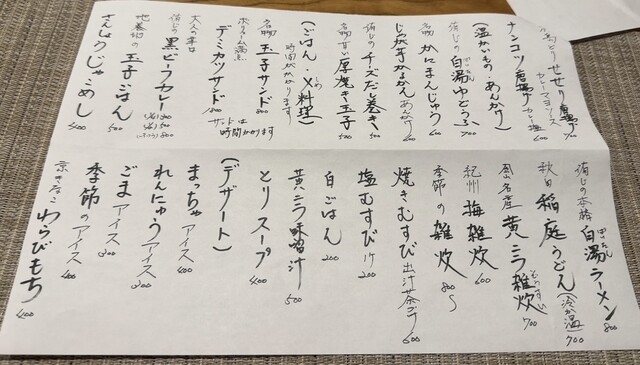 せせり唐揚げ 700
カレーマヨソース
ナンコツ唐揚げ カレー塩 600
(温かいもの あんかけ)
侑じの白湯ゆどうふ 700
名物 かにまんじゅう 600
じゃが芋かるかん あんかけ 600
侑じの チーズだし巻き 500
名物 甘い厚焼き玉子 500
(ごはん、〆料理)
時間がかかります
名物 玉子サンド 800
ボリューム満点 デミカツサンド 1000
サンドは時間かかります
大人の辛口 侑じの黒ビーフカレー
地養卵の玉子ごはん 500
さんしょうじゃこめし 400
侑じの本格 白湯ラーメン 800
秋田 稲庭うどん (冷か温) 700
黄ニラ雑炊 700
紀州 梅雑炊 600
季節の雑炊 800〜
焼きむすび 出汁茶づけ 600
塩むすび 1ケ 200
白ごはん 200
黄ニラ味噌汁 500
とりスープ 400
(デザート)
まっちゃアイス 400
れんにゅうアイス 300
ごまアイス 300
季節のアイス 400
京きなこ わらびもち 400